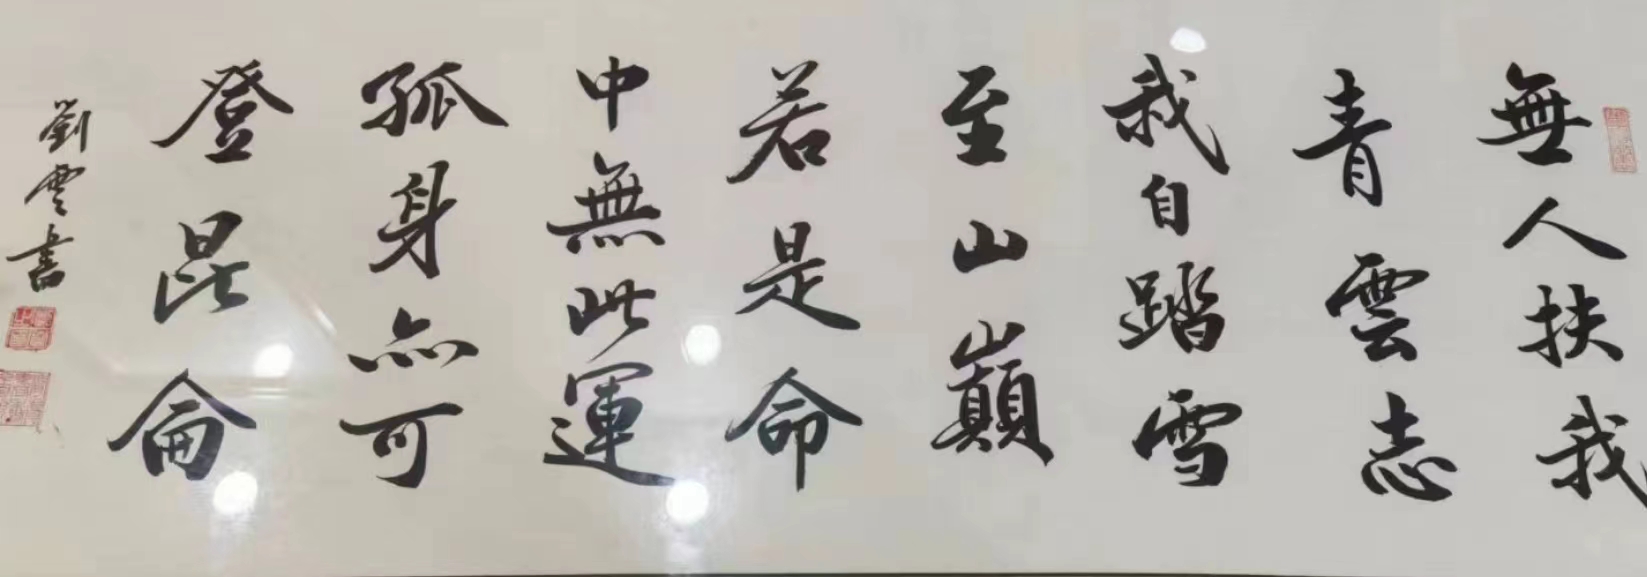 無人扶我
青雲志
我自踏雪
至山巔
若是命
中無此運
孤身亦可
登昆侖
劉雲書